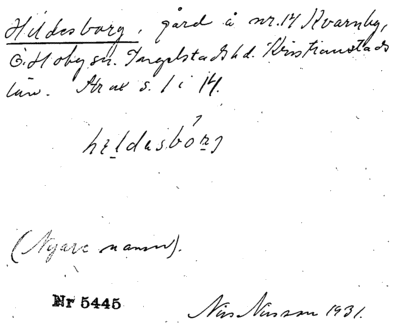 Hildesborg, gård å nr. 14 Kvarnby,
Ö. Hoby sn. Ingelstads hd. Kristianstads
län. Ar ax s. 1 i 14.
hildasbórg
(Nyare namn).
Nr 5445
Nils Nilsson 1931.